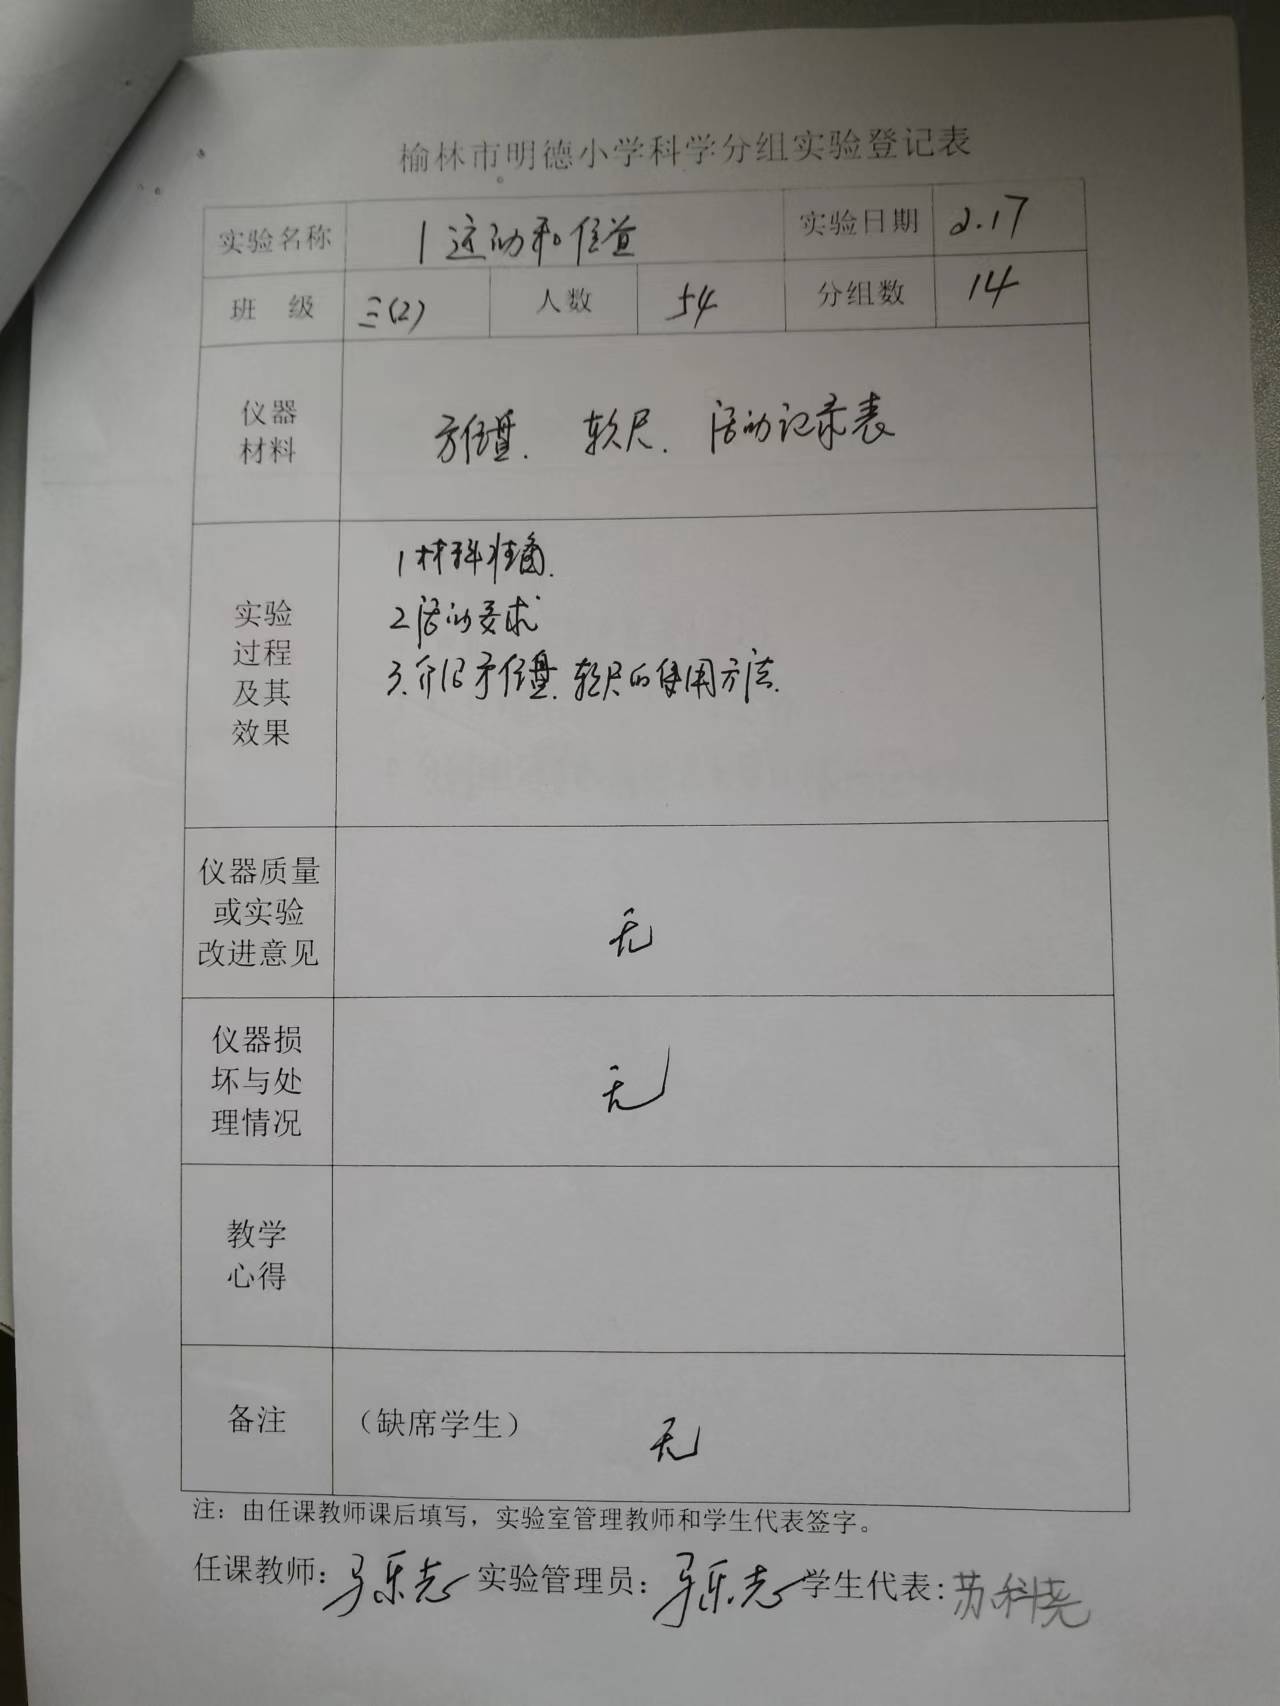 榆林市明德小学科学分组实验登记表
实验名称 1 运动和位置 实验日期 2.17
班 级 三(2) 人数 54 分组数 14
仪器
材料
方位盘. 软尺. 活动记录表
实验
过程
及其
效果
1 材料准备.
2 活动要求
3. 介绍方位盘. 软尺的使用方法.
仪器质量
或实验
改进意见
无
仪器损
坏与处
理情况
无
教学
心得
备注 （缺席学生） 无
注：由任课教师课后填写，实验室管理教师和学生代表签字。
任课教师: 马乐志 实验管理员: 马乐志 学生代表: 苏科尧